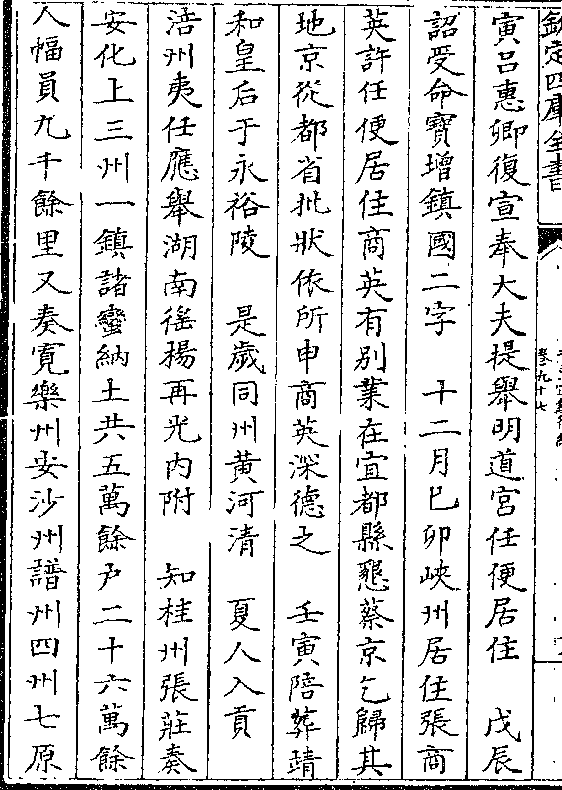 欽定四庫全書
卷九十七
寅呂惠卿復宣奉大夫提舉明道宮任便居住　戊辰
詔受命寶增鎮國二字　十二月己卯峽州居住張商
英許任便居住商英有别業在宜都縣懇蔡京乞歸其
地京從都省批狀依所申商英深德之　壬寅陪葬靖
和皇后于永裕陵　是歲同州黄河清　夏人入貢
涪州夷任應舉湖南徭楊再光内附　知桂州張莊奏
安化上三州一鎮諸蠻納土共五萬餘户二十六萬餘
人幅員九千餘里又奏寛樂州安沙州譜州四州七原